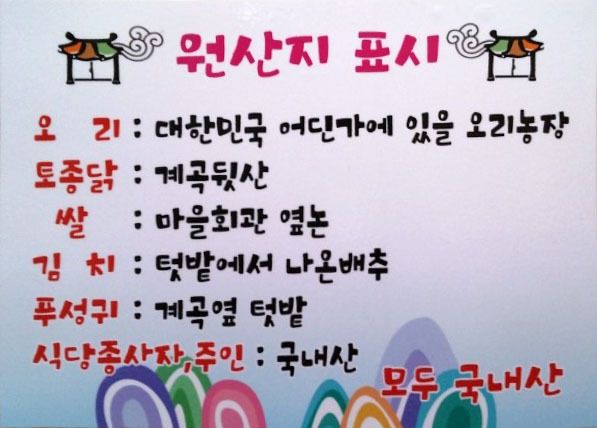 원산지 표시
오 리 : 대한민국 어딘가에 있을 오리농장
토종닭 : 계곡뒷산
쌀 : 마을회관 옆논
김 치 : 텃밭에서 나온배추
푸성귀 : 계곡옆 텃밭
식당종사자,주인 : 국내산
모두 국내산